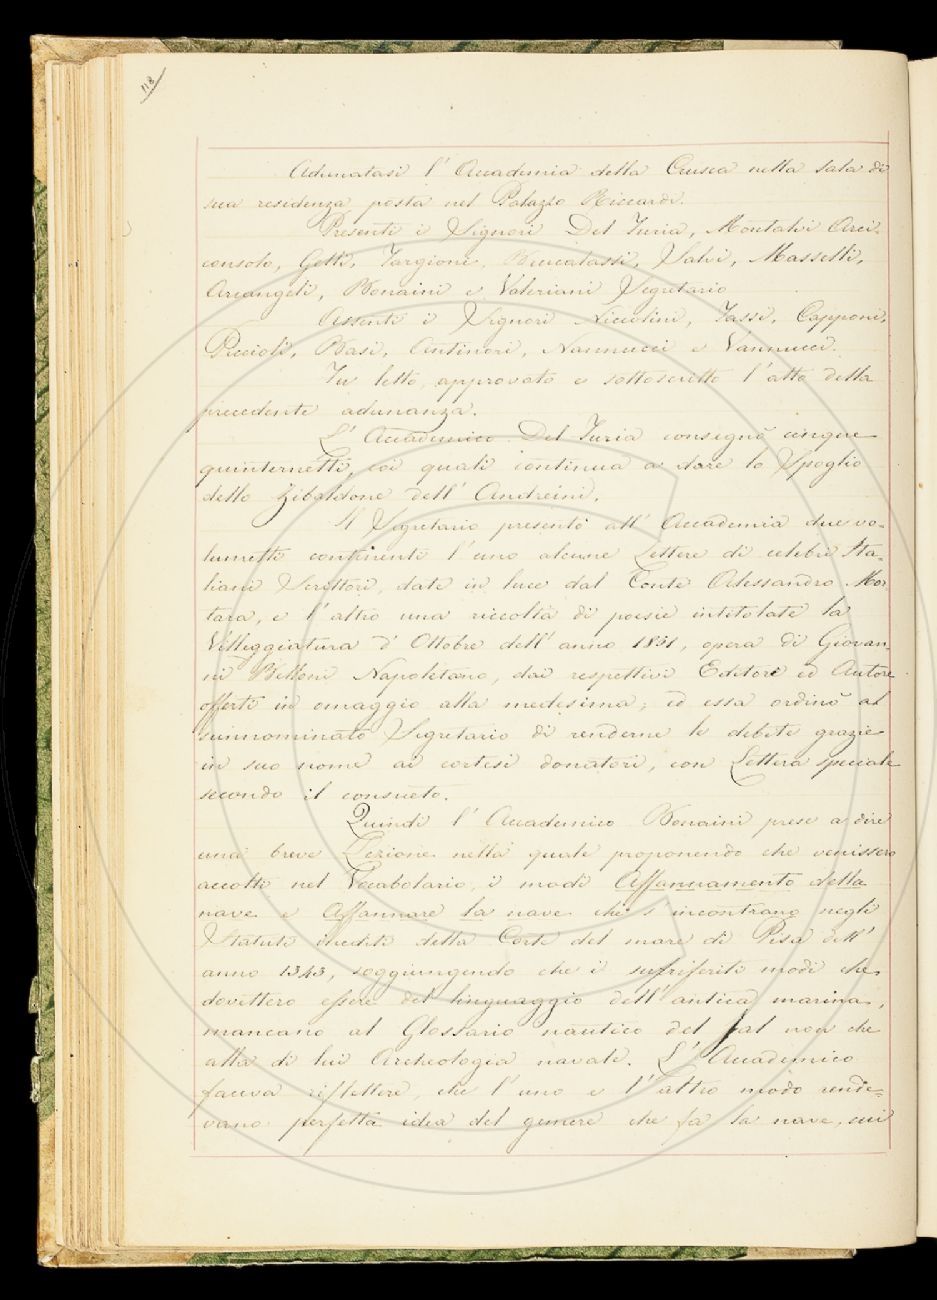 118
Adunatasi l' Accademia della Crusca nella sala di
sua residenza posta nel Palazzo Riccardi.
Presenti i Signori Del Furia, Montalvi Arci-
consolo, Gelli, Targioni, Bencalassi, Salvi, Masselli,
Arcangeli, Bonaini e Valeriani Segretario
Assenti i Signori Niccolini, Tassi, Capponi,
Piccioli, Basi, Antinori, Nannucci e Vannucci.
Fu letto, approvato e sottoscritto l'atto della
precedente adunanza.
L' Accademico Del Furia consegnò cinque
quinternetti, coi quali continua a dare lo Spoglio
dello Zibaldone dell' Andreini.
Il Segretario presentò all' Accademia due vo-
lumetti contenenti l'uno alcune Lettere di celebri Ita-
liani Scrittori, date in luce dal Conte Alessandro Mor-
tara, e l'altro una raccolta di poesie intitolate la
Villeggiatura d' Ottobre dell' anno 1831, opera di Giovan-
ni Belloni Napoletano, dai respettivi Editore ed Autore
offerti in omaggio alla medesima; ed essa ordinò al
sunnominato Segretario di renderne le debite grazie
in suo nome ai cortesi donatori, con Lettera speciale
secondo il consueto.
Quindi l' Accademico Bonaini prese a dire
una breve Lezione nella quale proponendo che venissero
accolti nel Vocabolario i modi Affannamento della
nave e Affannare la nave che s'incontrano negli
Statuti inediti della Corte del mare di Pisa dell'
anno 1343, soggiungendo che i suriferiti modi che
dovettero essere del linguaggio dell'antica marina,
mancano al Glossario nautico del Jal non che
alla di lui Archeologia navale. L' Accademico
faceva riflettere, che l'uno e l'altro modo rende-
vano perfetta idea del gemere che fa la nave, cui